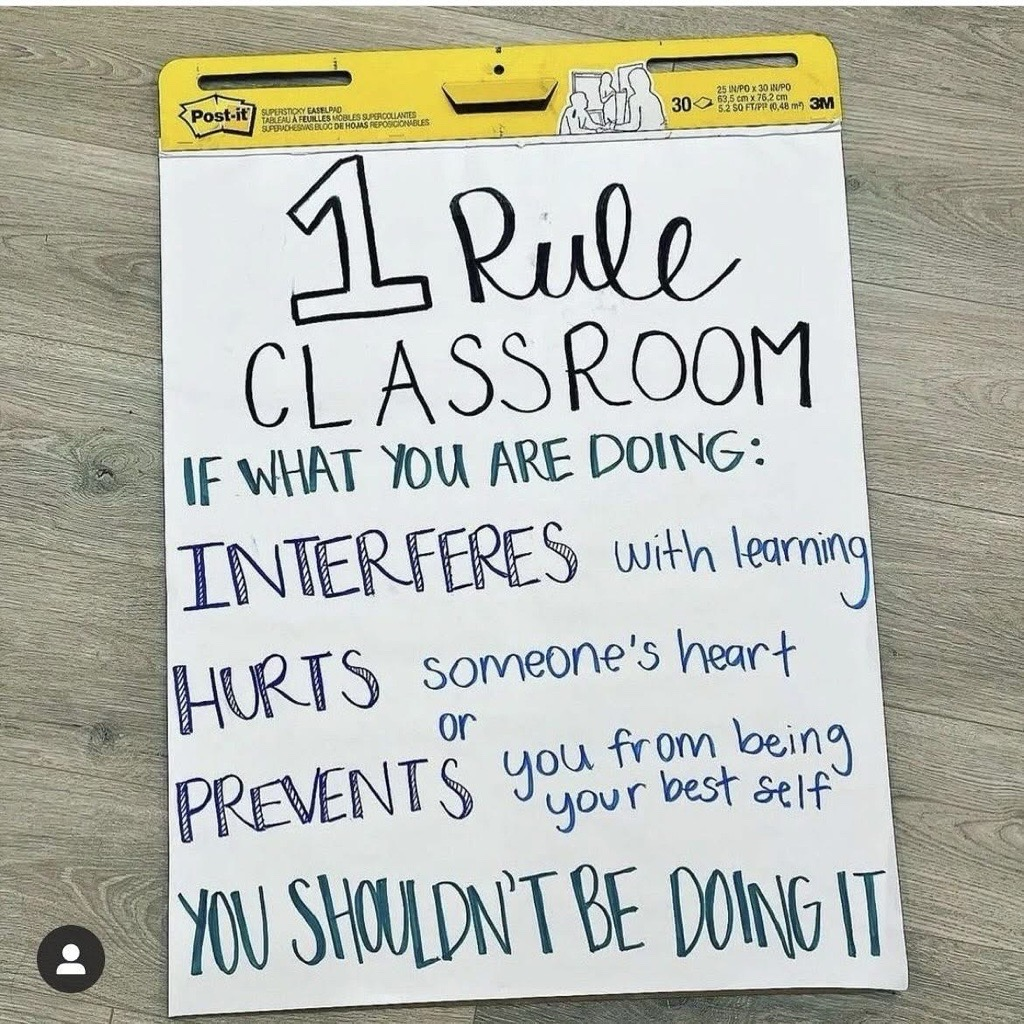 Post-it
SUPERSTICKY EASELPAD
TABLEAU À FEUILLES MOBILES SUPERCOLLANTES
SUPERADHESIVAS BLOC DE HOJAS REPOSICIONABLES
30
25 IN/PO x 30 IN/PO
63,5 cm x 76,2 cm
5.2 SQ FT/PI² (0,48 m²)
3M
1 Rule
CLASSROOM
IF WHAT YOU ARE DOING:
INTERFERES with learning
HURTS someone's heart
or
PREVENTS you from being
your best self
YOU SHOULDN'T BE DOING IT